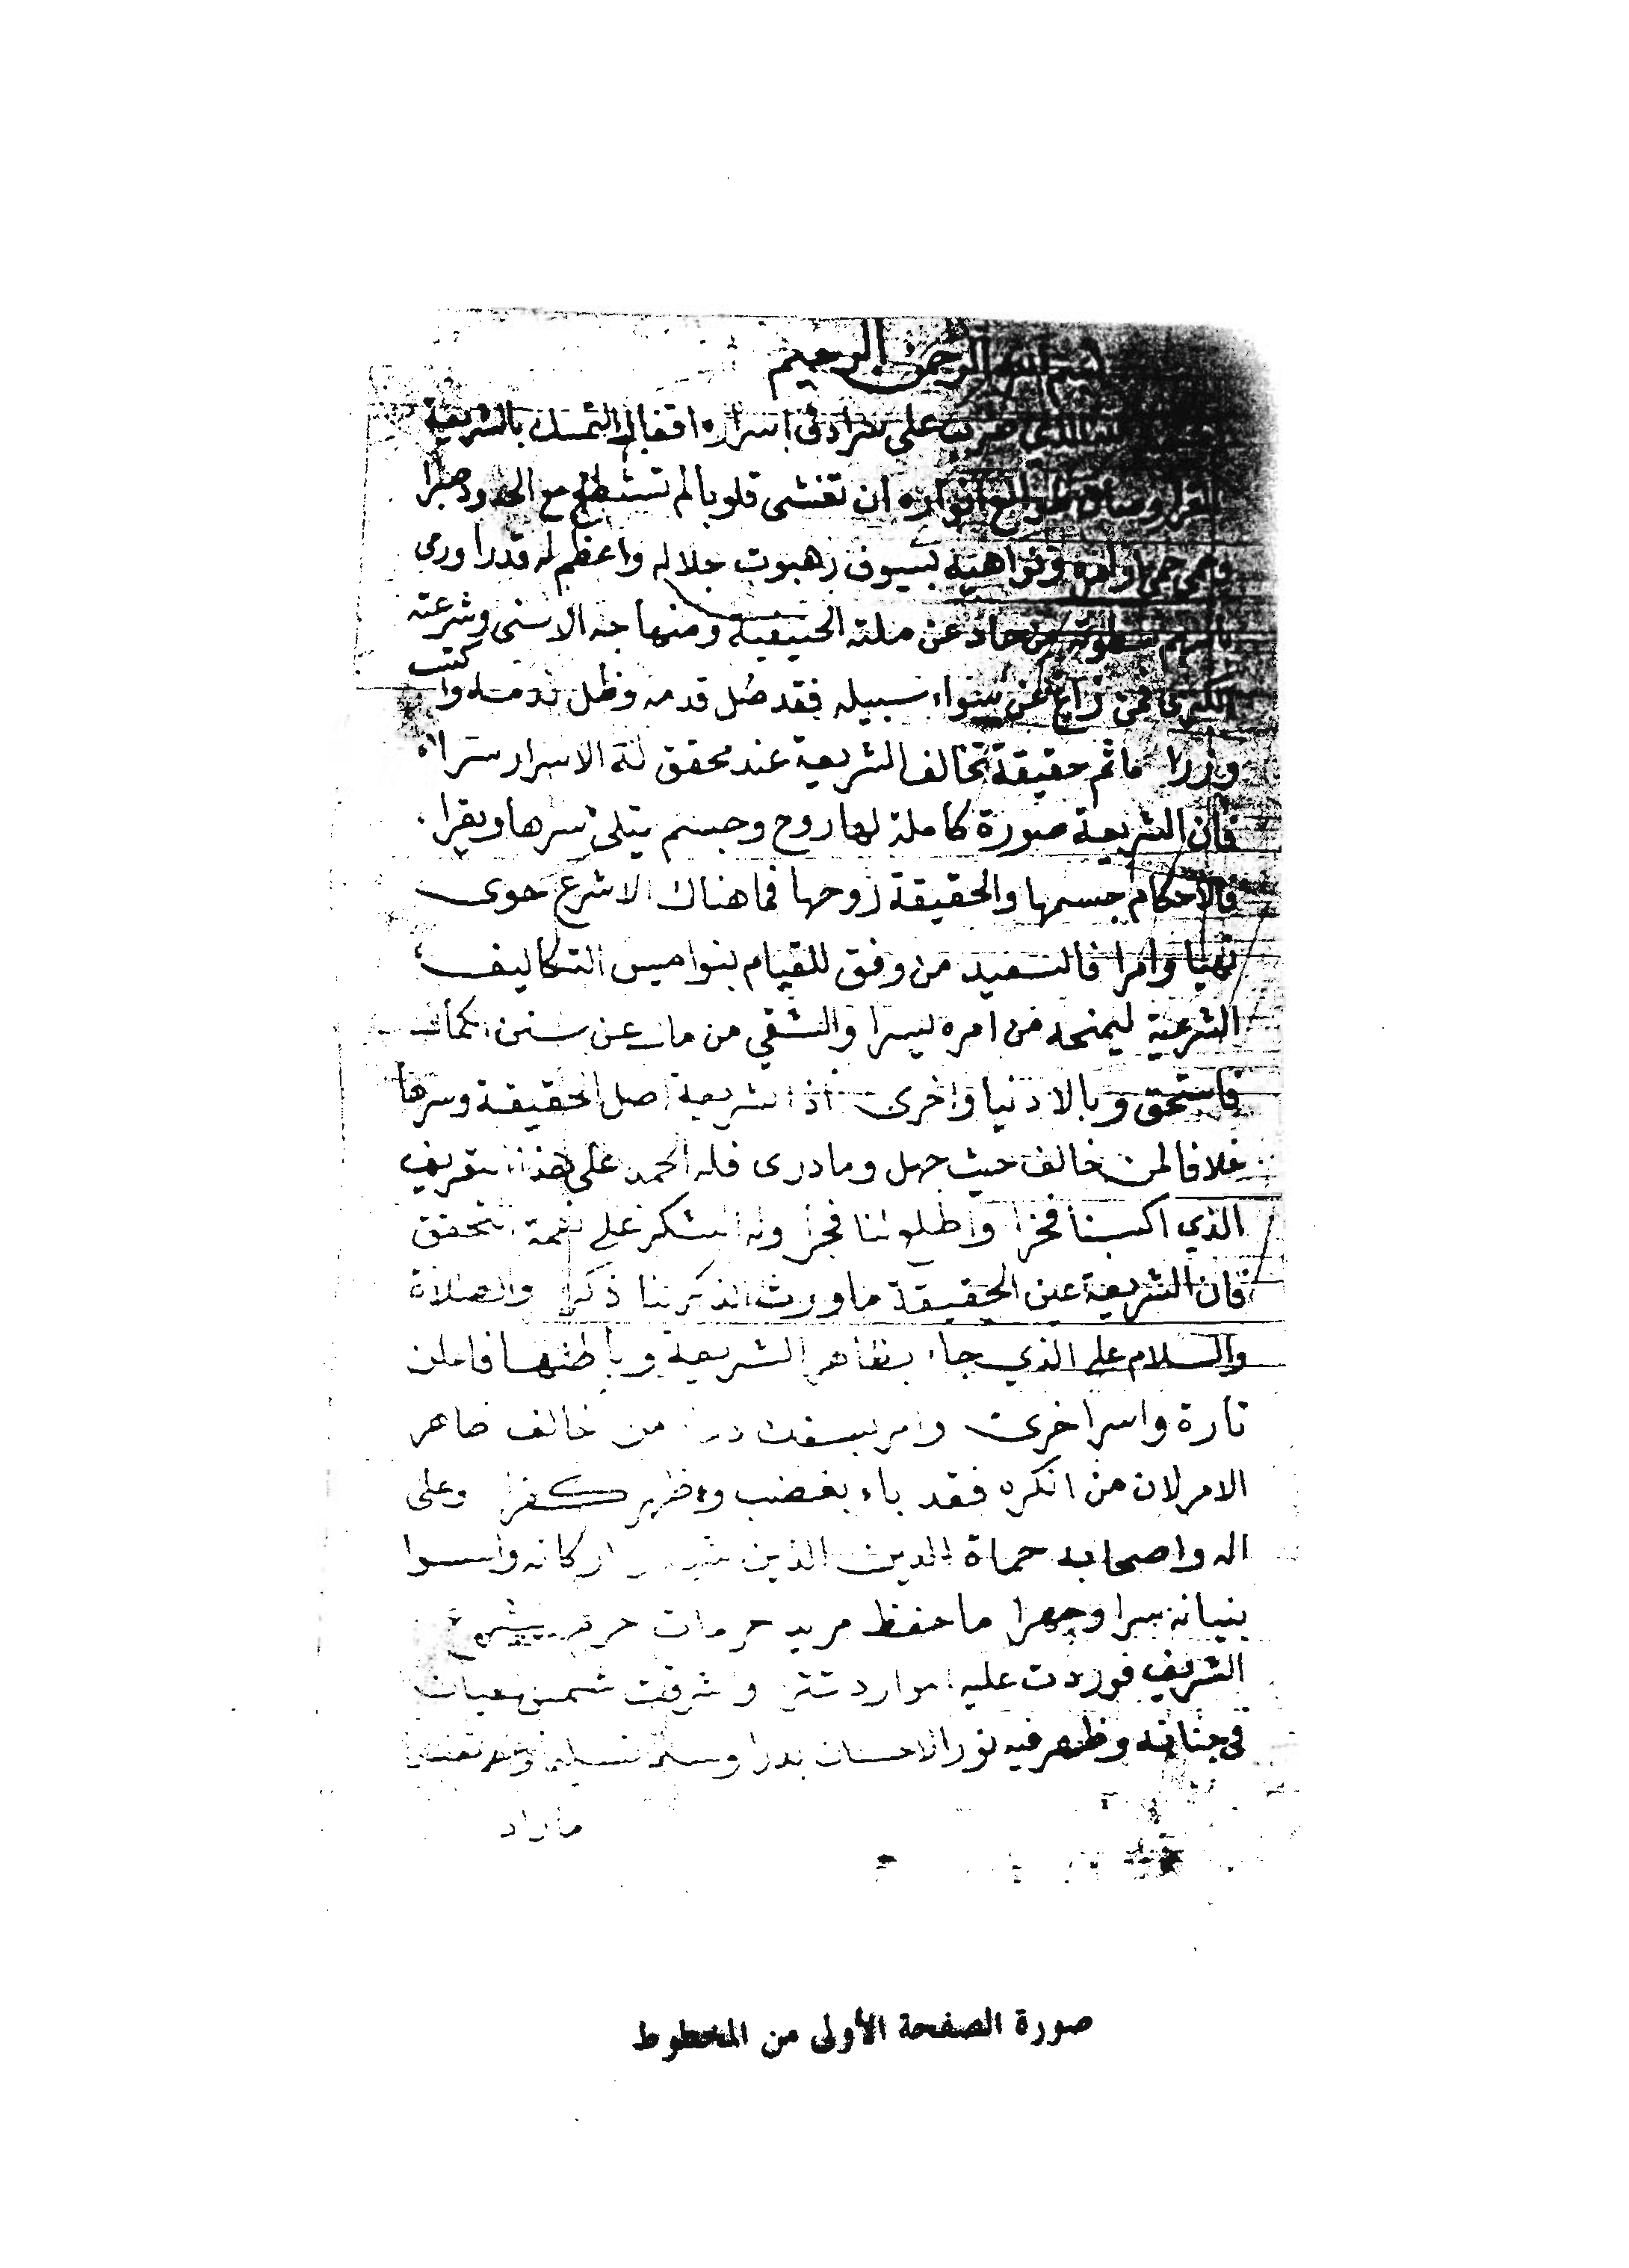 بسم الله الرحمن الرحيم
الذي ضرب على سرادق اسراره اقفال التمسك بالشريعة
الغرا وصان طوالع انواره ان تغشى قلوبا لم تستطع مع الحدود صبرا
وحمى حمى اوامره ونواهيه بسيوف رهبوت جلاله واعظم له قدرا ورمى
باسهم سطوته من حاد عن ملته الحنيفية ومنهاجه الاسنى وشرعته
الكبرى فمن زاغ عن سواء سبيله فقد ضل قدمه وظل ندمه واكتسب
وزرا فاثم حقيقة تخالف الشريعة عند محقق له الاسرار سرا
فان الشريعة صورة كاملة لها روح وجسم يتلى سرها ويقرا
فالاحكام جسمها والحقيقة روحها فما هناك الا شرع حوى
نهيا وامرا فالسعيد من وفق للقيام بنواميس التكاليف
الشرعية ليمنحه من امره يسرا والشقي من مال عن سنن الكمال
فاستحق وبالا دنيا واخرى اذ الشريعة اصل الحقيقة وسرها
خلافا لمن خالف حيث جهل وما درى فله الحمد على هذا التعريف
الذي اكسبنا فخرا واطلع لنا فجرا وله الشكر على نعمة التحقق
فان الشريعة عين الحقيقة ما ورث الذكر لنا ذكرا والصلاة
والسلام على الذي جاء بظاهر الشريعة وباطنها فاعلن
تارة واسر اخرى وامر بسفك دم من خالف ظاهر
الامر لان من انكره فقد باء بغضب واظهر كفرا وعلى
اله واصحابه حماة الدين الذين اركانه واسسوا
بنيانه سرا وجهرا ما حفظ مريد حرمات حرم
الشريف فوردت عليه الموارد تترا واشرقت شمس
في جنانه وظهر فيه نور الاحسان بدرا وسلم تسليما
ما راد
صورة الصفحة الأولى من المخطوط